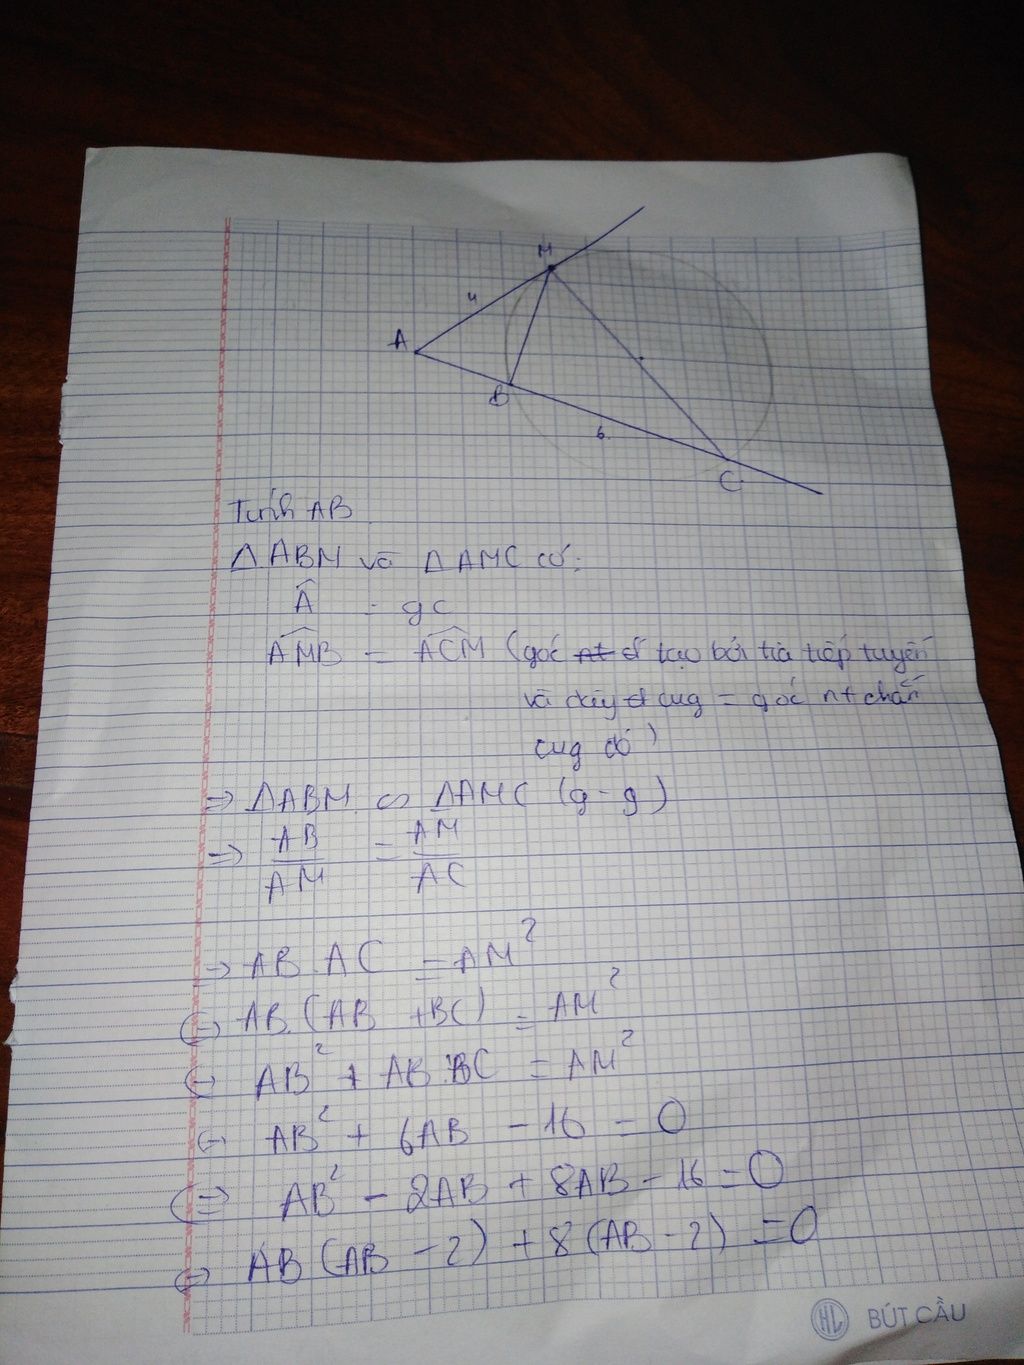 M
4
A
B
6
C
Tính AB
△ABM và △AMC có:
Â = gc
AMB = ACM (góc nt tạo bởi tia tiếp tuyến
và dây cug = góc nt chắn
cug đó)
=> △ABM ∽ △AMC (g-g)
=> AB/AM = AM/AC
=> AB.AC = AM²
<=> AB.(AB+BC) = AM²
<=> AB² + AB.BC = AM²
<=> AB² + 6AB - 16 = 0
<=> AB² - 2AB + 8AB - 16 = 0
<=> AB(AB - 2) + 8(AB - 2) = 0
HL BÚT CẦU